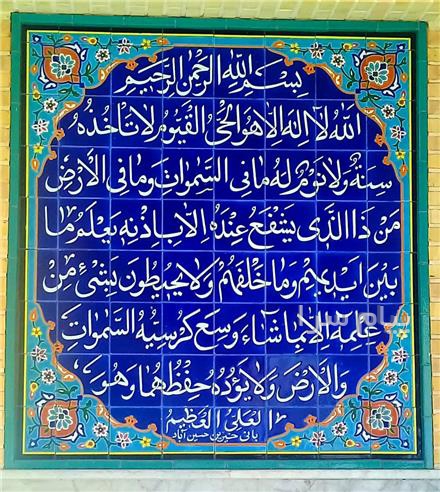 بسم الله الرحمن الرحیم
الله لا اله الا هو الحی القیوم لا تاخذه
سنة ولا نوم له ما فی السموات وما فی الارض
من ذا الذی یشفع عنده الا باذنه یعلم ما
بین ایدیهم وما خلفهم ولا یحیطون بشیء من
علمه الا بما شاء وسع کرسیه السموات
والارض ولا یؤده حفظهما وهو
العلی العظیم
بانی حسین حسین آباد
پیام سرا